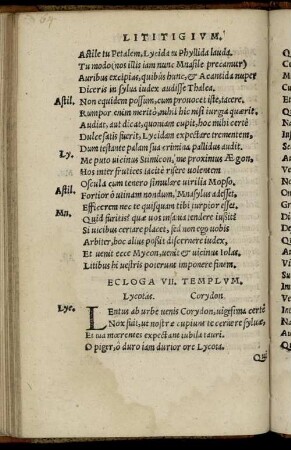 LITITIGIVM.
Astile tu Petalem, Lycida tu Phyllida lauda.
Tu modo (nos illis iam nunc Mnasile precamur)
Auribus excipias, quibus hunc, & Acantida nuper
Diceris in sylua iudex audisse Thalea.
Astil. Non equidem possum, cum prouocet iste, tacere.
Rumpor enim merito, nihil hic nisi iurgia quærit.
Audiat, aut dicat, quoniam cupit, hoc mihi certè
Dulce satis fuerit, Lycidan expectare trementem,
Dum testante palam sua crimina pallidus audit.
Ly. Me puto uicinus Stimicon, me proximus Ægon,
Hos inter frutices tacitè risere uolentem
Oscula cum tenero simulare uirilia Mopso.
Astil. Fortior ô utinam nondum, Mnasylus adesset.
Efficerem nec te quisquam tibi turpior esset.
Mn. Quid furitis? quæ uos insania tendere iussit?
Si uicibus certare placet, sed non ego uobis
Arbiter, hoc alius possit discernere iudex,
Et uenit ecce Mycon, uenit & uicinus Iolas.
Litibus hi uestris poterunt imponere finem.
ECLOGA VII. TEMPLVM.
Lycotas. Corydon.
Lyc. LEntus ab urbe uenis Corydon, uigesima certè
Nox fuit, ut nostræ cupiunt te cernere syluæ,
Et tua mœrentes expectant iubila tauri.
O piger, ô duro iam durior ore Lycota.